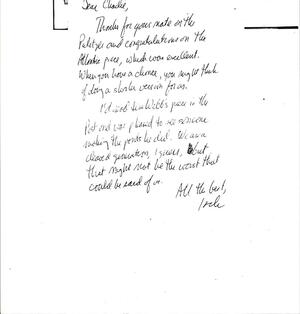 Dear Charlie,
Thanks for your note on the
Pulitzer and congratulations on the
Atlantic piece, which was excellent.
When you have a chance, you might think
of doing a shorter version for us.
I'd read Jim Webb's piece in the
Post and was pleased to see someone
making the points he did. We are a
generation, I guess, but
that might not be the worst that
could be said of us.
All the best,